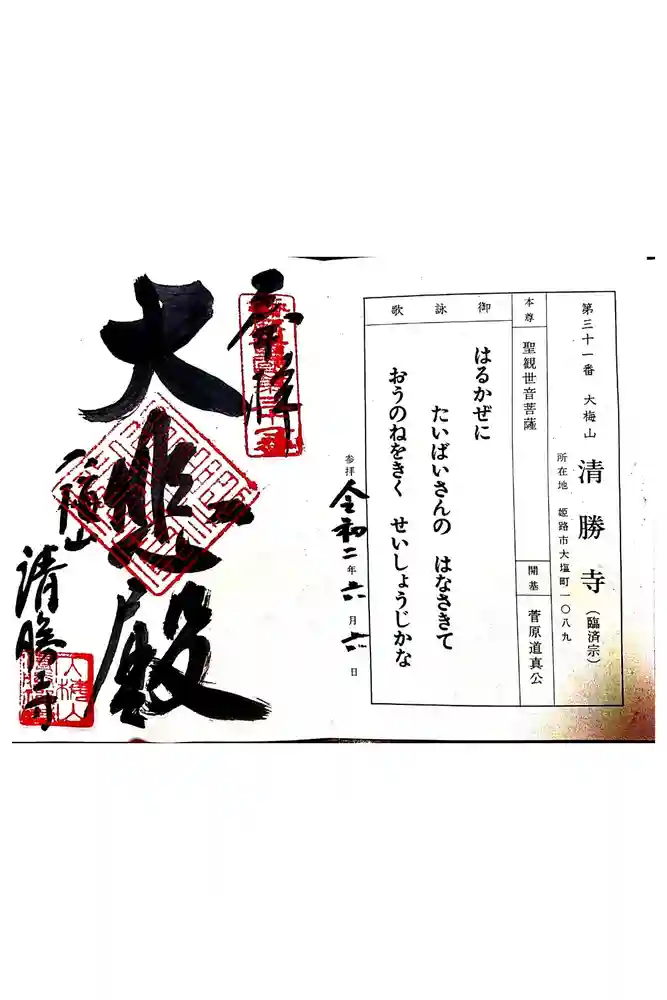 第三十一番 大梅山 清勝寺（臨済宗）
所在地 姫路市大塩町一〇八九
本尊 聖観世音菩薩
開基 菅原道真公
御詠歌
はるかぜに
たいばいさんの はなさきて
おうのねをきく せいしょうじかな
参拝 令和二年六月六日
奉拝
大悲殿
大梅山
清勝寺